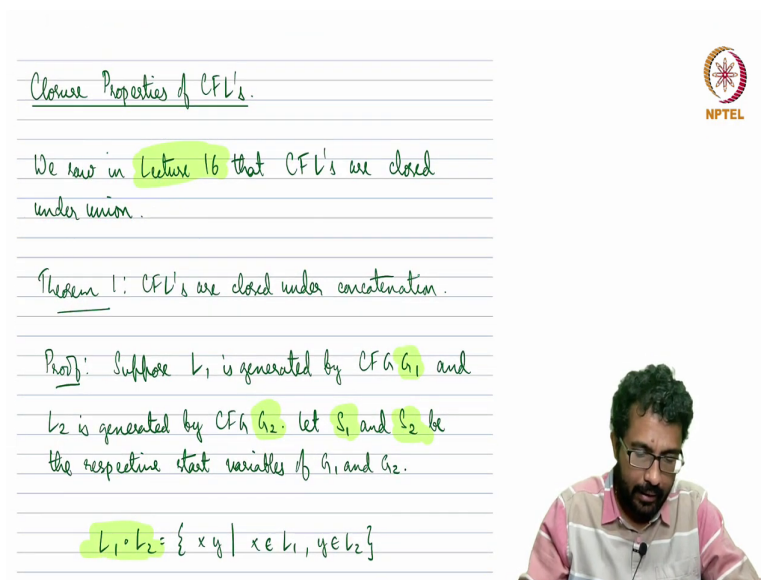 Closure Properties of CFL's.
NPTEL
We saw in Lecture 16 that CFL's are closed
under union.
Theorem 1: CFL's are closed under concatenation.
Proof: Suppose L₁ is generated by CFG G₁ and
L₂ is generated by CFG G₂. Let S₁ and S₂ be
the respective start variables of G₁ and G₂.
L₁ ∘ L₂ = { xy | x ∈ L₁, y ∈ L₂ }